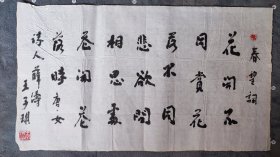 春望詞
花開不
同賞花
落不同
悲欲問
相思處
花開花
落時唐女
詩人薛濤
王子